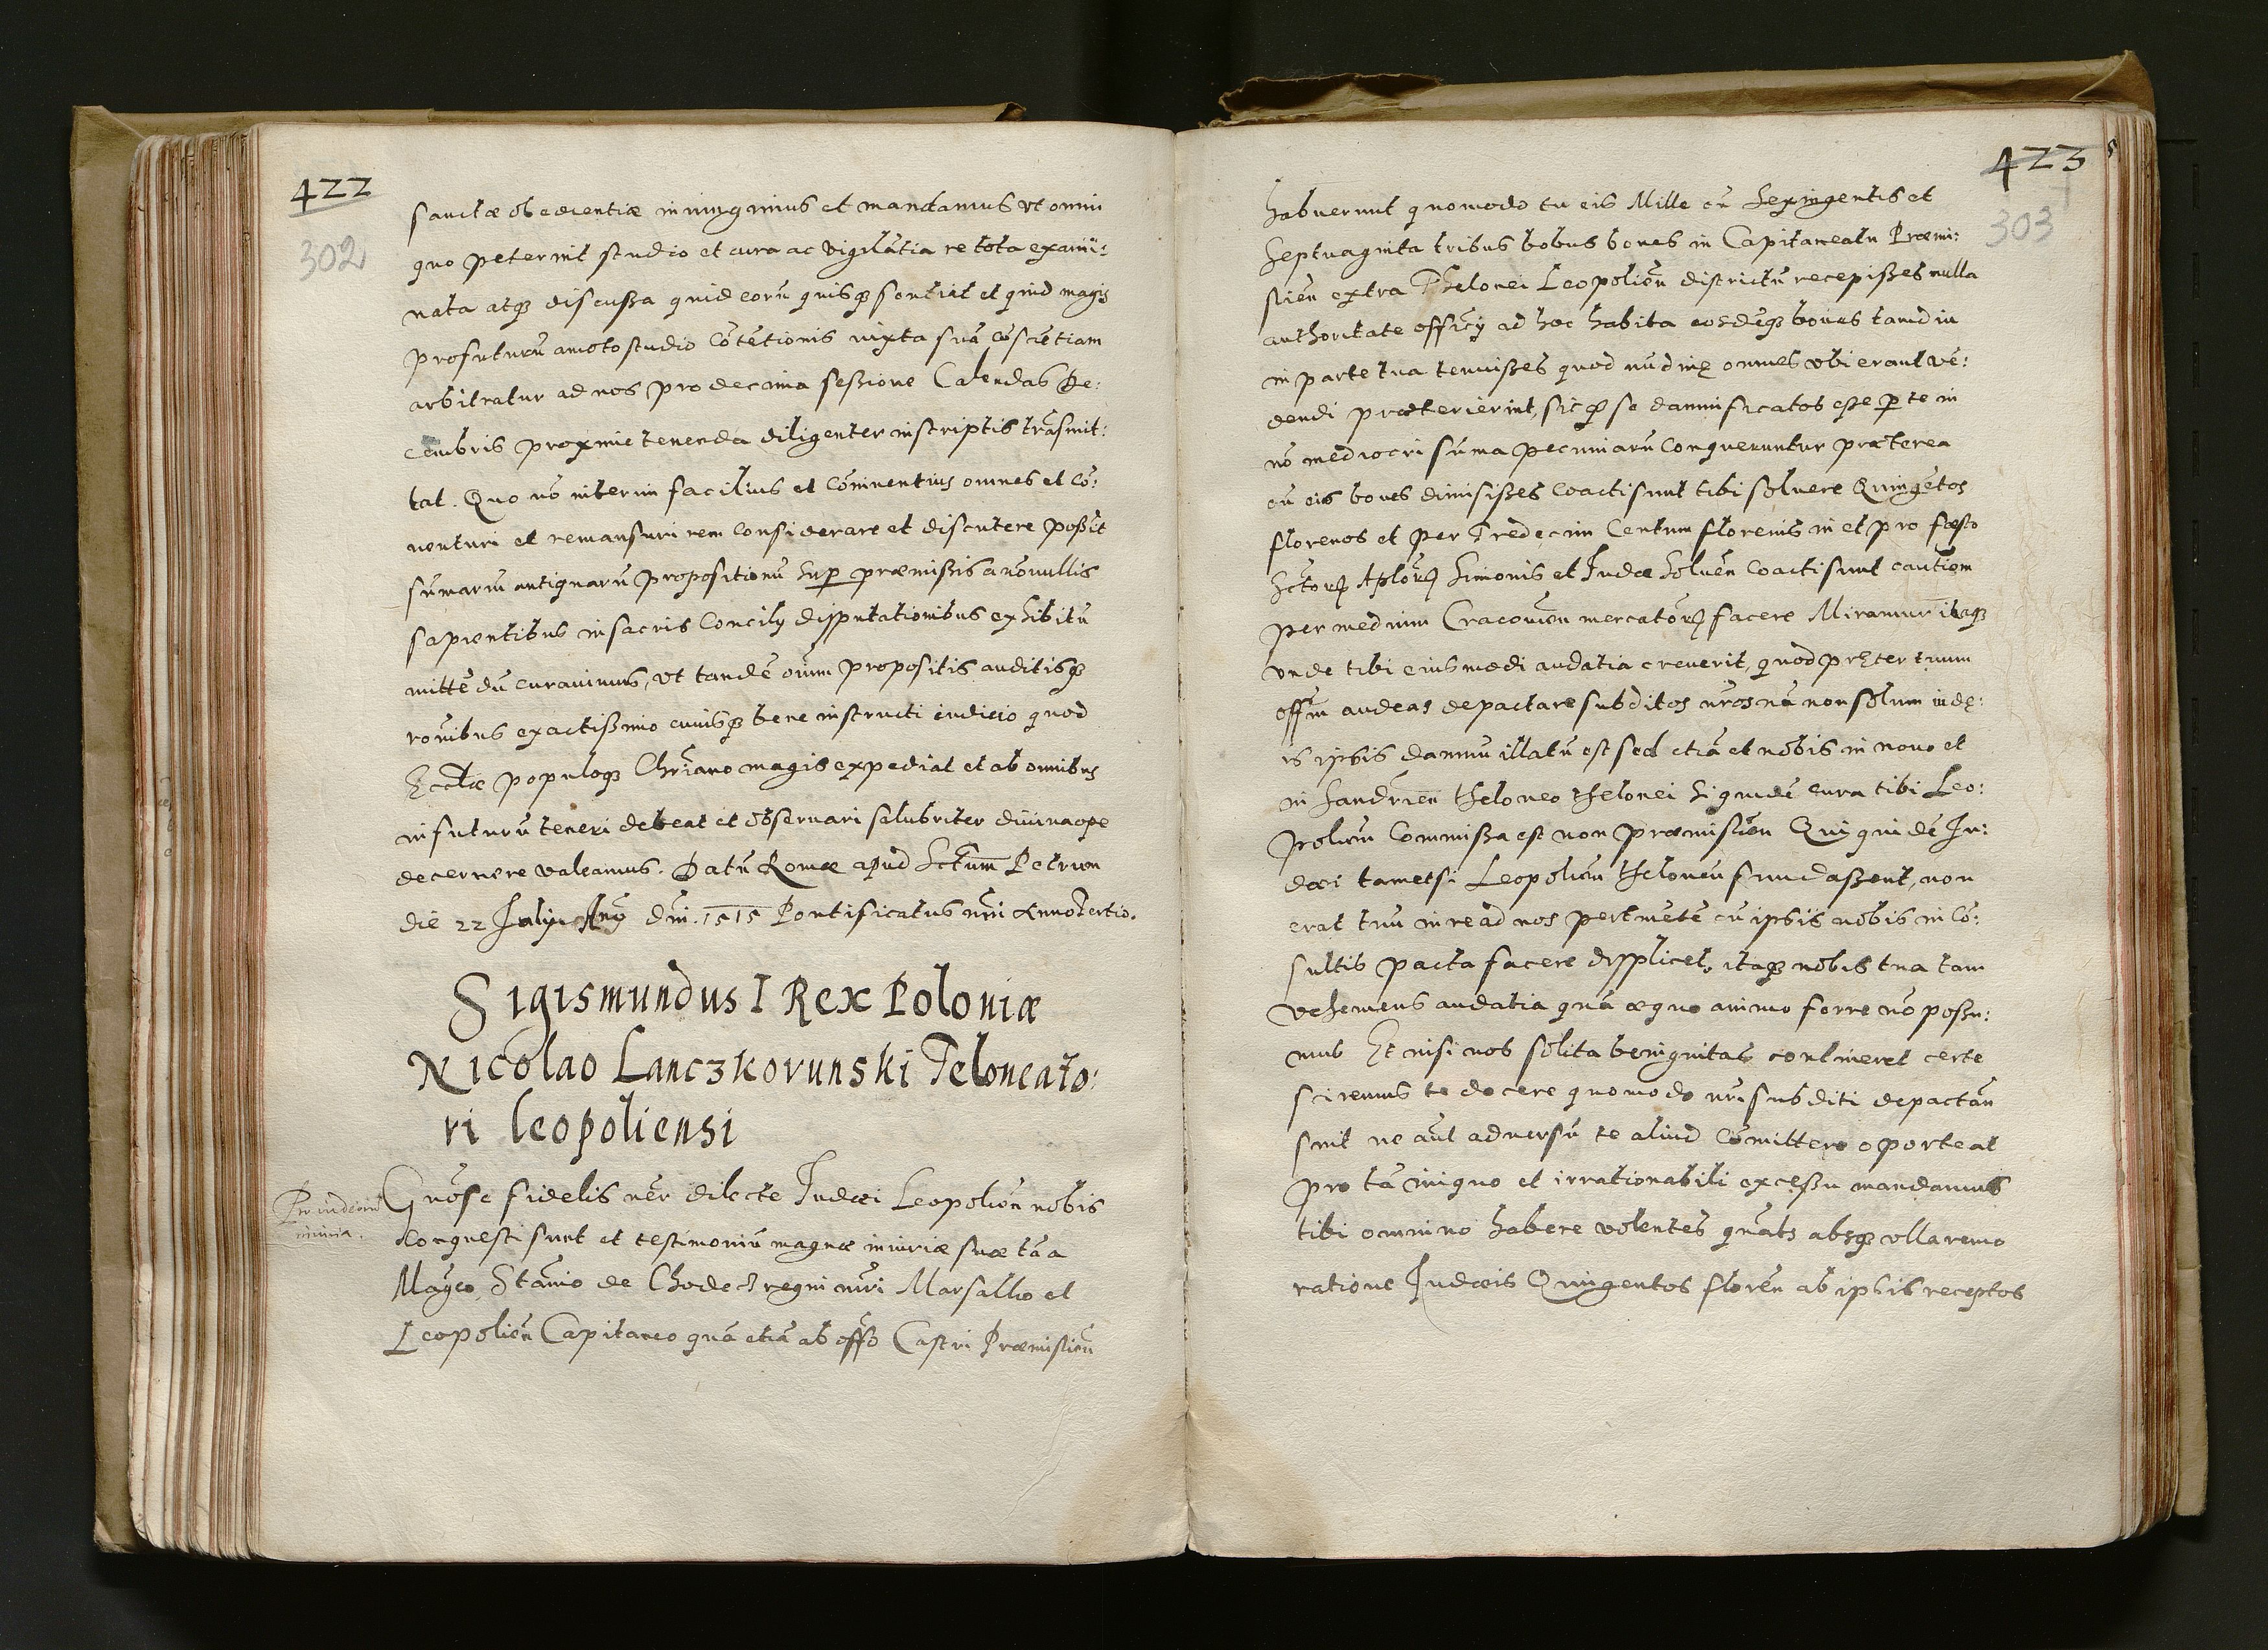 422
302
sanctæ obedientiæ iniungimus et mandamus vt omni
quo peterint studio et cura ac vigilãtia re tota exami:
nata atq3 discussa quid eorũ quisq3 sentiat et quid magis
profuturũ amoto studio cõtẽtionis iuxta suã cõsciẽtiam
arbitratur ad nos pro decima seßione Calendas De:
cembris proxime tenenda diligenter in scriptis trãsmit:
tat. Quo võ interim facilius et cõmuentius omnes et cõ:
uenturi et remansuri rem considerare et discutere poßĩt
sũmariũ antiquarũ propositionũ sup præmißis a nõnullis
sapientibus in sacris Concilÿ disputationibus exhibitũ
mittẽdũ curauimus, vt tandẽ oĩum propositis auditisq3
rõnibus exactißimo cuiusq3 bene instructi iudicio quod
Ecclæ populoq3 Chriano magis expediat et ab omnibus
in futurũ teneri debeat et obseruari salubriter diuina ope
decernere valeamus. Datũ Romæ apud Sctum Petrum
die 22 Julÿ Anõ dni. 1515 Pontificatus nrĩ Anno Tertio.
Sigismundus I Rex Poloniæ
Nicolao Lanczkorunski Teloneato:
ri leopoliensi
Gnõse fidelis nẽr dilecte Judæi Leopolieñ nobis
conquesti sunt et testimoniũ magnæ iniuriæ suæ tã a
Magco Stanio de Chodecz regni nrĩ Marsallo et
Leopolieñ Capitaneo quã etiã ab offõ Castri Præmislieñ
423
303
habuerunt quomodo tu eis Mille cũ Sexingentis et
Septuaginta tribus bobus boues in Capitaneatu Præmi:
slieñ extra Thelonei Leopolieñ districtũ recepißes nulla
authoritate officÿ ad hoc habita eosdẽq3 boues tamdiu
in parte tua tenuißes quod nũdinę omnes vbi erant vẽ:
dendi præterierint, sicq3 se damnificatos eße p te in
nõ mediocri sũma pecuniarũ conqueruntur præterea
cũ eis boues dimisißes coacti sunt tibi soluere Quingẽtos
florenos et per Tredecim Centum florenis in et pro festo
Sctorũ Aplorũ Simonis et Judæ Soluen coacti sunt cautiõem
per medium Cracouien mercatorũ facere Miramur itaq3
vnde tibi eiusmodi audatia creuerit, quod pręter tuum
offm audeas depactare subditos nrõs nã non solum iudę:
is ipsis damnũ illatũ est sed etiã et nobis in nouo et
in Sandrien theloneo thelonei Siquidẽ cura tibi Leo:
poliem Commißa est non præmislien Qui quidẽ Ju:
dæi tametsi Leopolien theloneũ fraudaßent, non
erat tuũ in re ad nos pertinẽte cũ ipsis nobis in cõ:
sultis pacta facere displicet, itaq3 nobis tua tam
vehemens audatia quã æquo animo ferre nõ poßu:
mus Et nisi nos solita benignitas contineret certe
sciremus te docere quomodo nrĩ subditi depactãn
sint ne aut aduersũ te aliud cõmittere oporteat
pro tã iniquo et irrationabili exceßu mandamus
tibi omnino habere volentes quats absq3 vlla remo
ratione Judæis Quingentos floreñ ab ipsis receptos